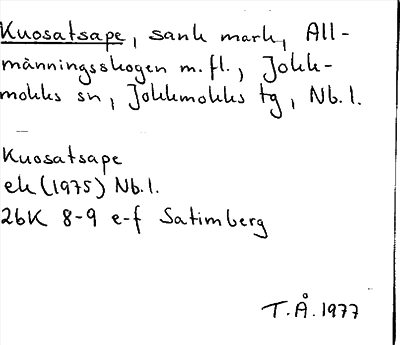 Kuosatsape, sank mark, All-
männingsskogen m.fl., Jokk-
mokks sn, Jokkmokks tg, Nb.l.
Kuosatsape
ek (1975) Nb.l.
26K 8-9 e-f Satimberg
T.Å. 1977